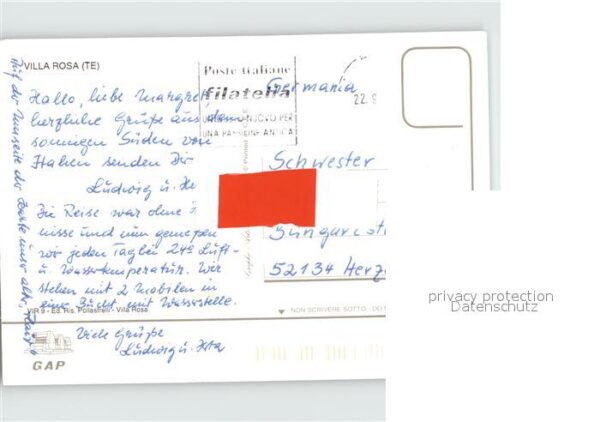 VILLA ROSA (TE)
Poste italiane
filatelia
NUOVO PER
UNA PASSIONE ANTICA
22.9
Germania
Hallo, liebe Margret
herzliche Grüße aus dem
sonnigen Süden von
Italien senden Dir
Ludwig u.
Die Reise war ohne
nisse und nun genießen
wir jeden Tag bei 24° Luft-
u. Wassertemperatur. Wir
stehen mit 2 Mobilen in
eine Bucht mit Wasserstelle.
Viele Grüße
Ludwig u.
Auf der
der Karte unser
Schwester
52134 Herz
VIR 9 - Ed. Ris. Polastrelli - Villa Rosa
NON SCRIVERE SOTTO - DO
GAP
privacy protection
Datenschutz